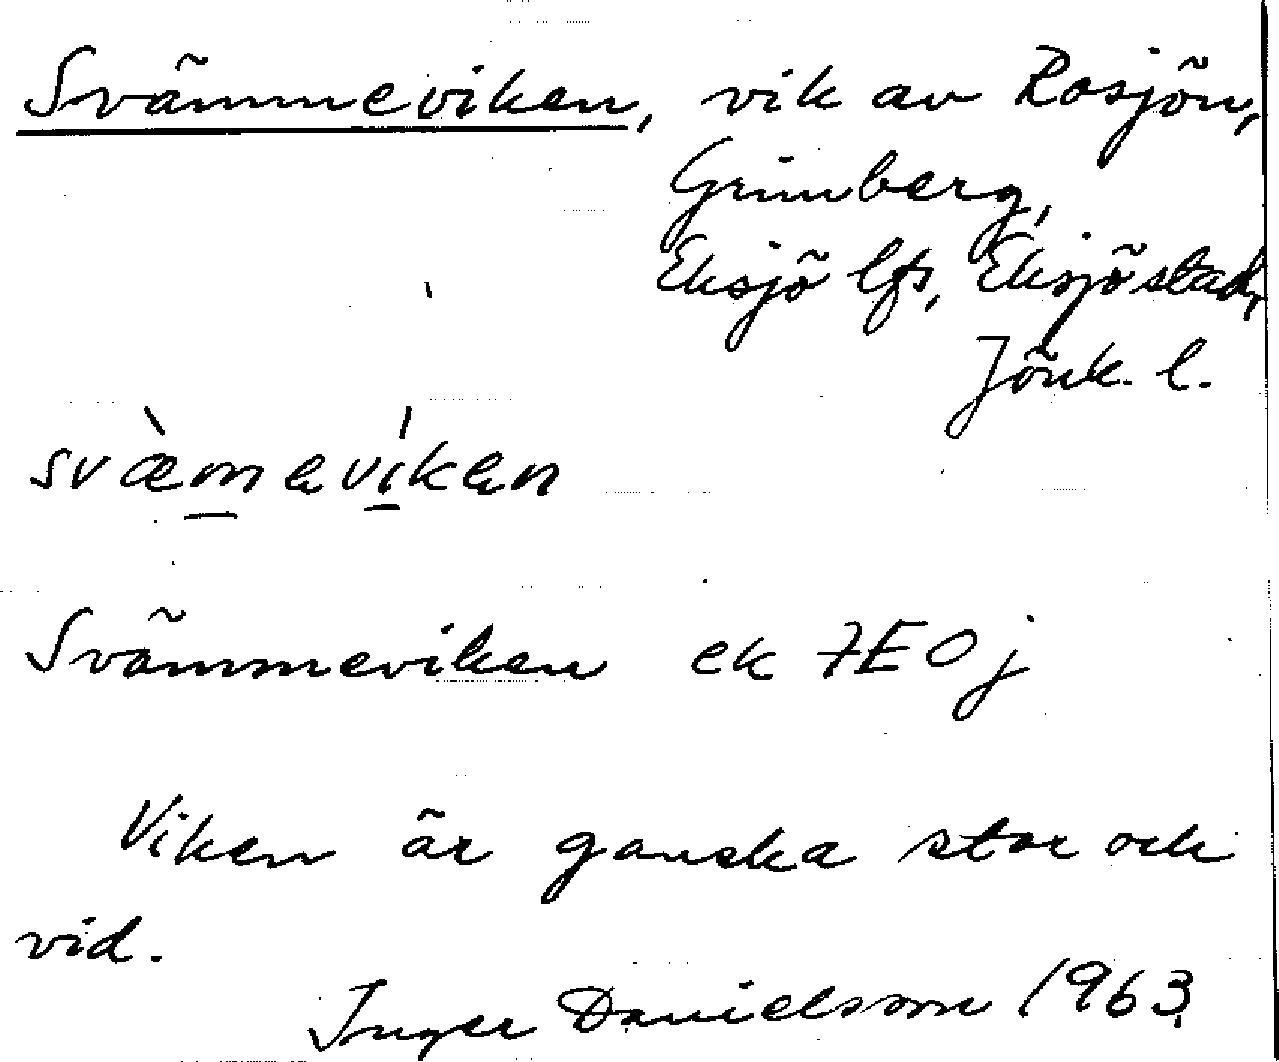 Svämmeviken, vik av Rosjön,
Grimberg,
Eksjö lfs, Eksjö stad,
Jönk. l.
svæ̀mevíken
Svämmeviken ek 7E0j
Viken är ganska stor och
vid.
Inger Danielsson 1963